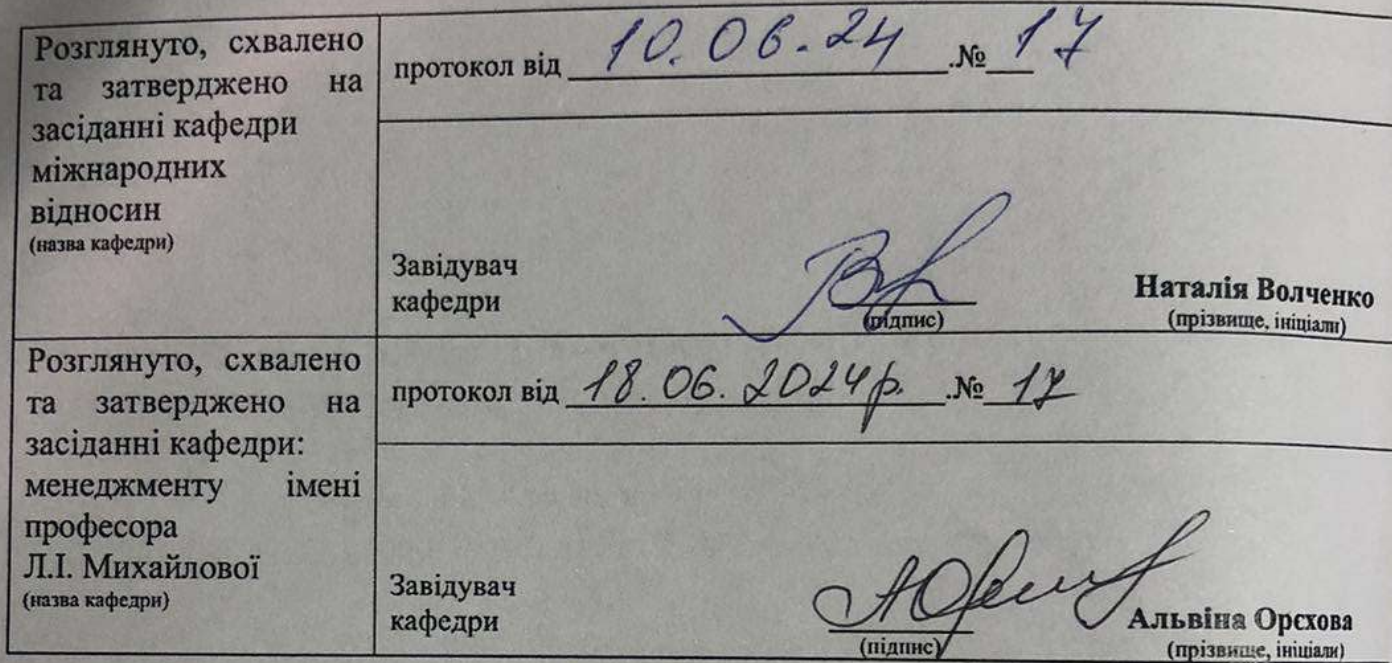 Розглянуто, схвалено
та затверджено на
засіданні кафедри
міжнародних
відносин
(назва кафедри)
протокол від 10.06.24 .№ 17
Завідувач
кафедри
(підпис)
Наталія Волченко
(прізвище, ініціали)
Розглянуто, схвалено
та затверджено на
засіданні кафедри:
менеджменту імені
професора
Л.І. Михайлової
(назва кафедри)
протокол від 18.06.2024р. .№ 17
Завідувач
кафедри
(підпис)
Альвіна Орєхова
(прізвище, ініціали)